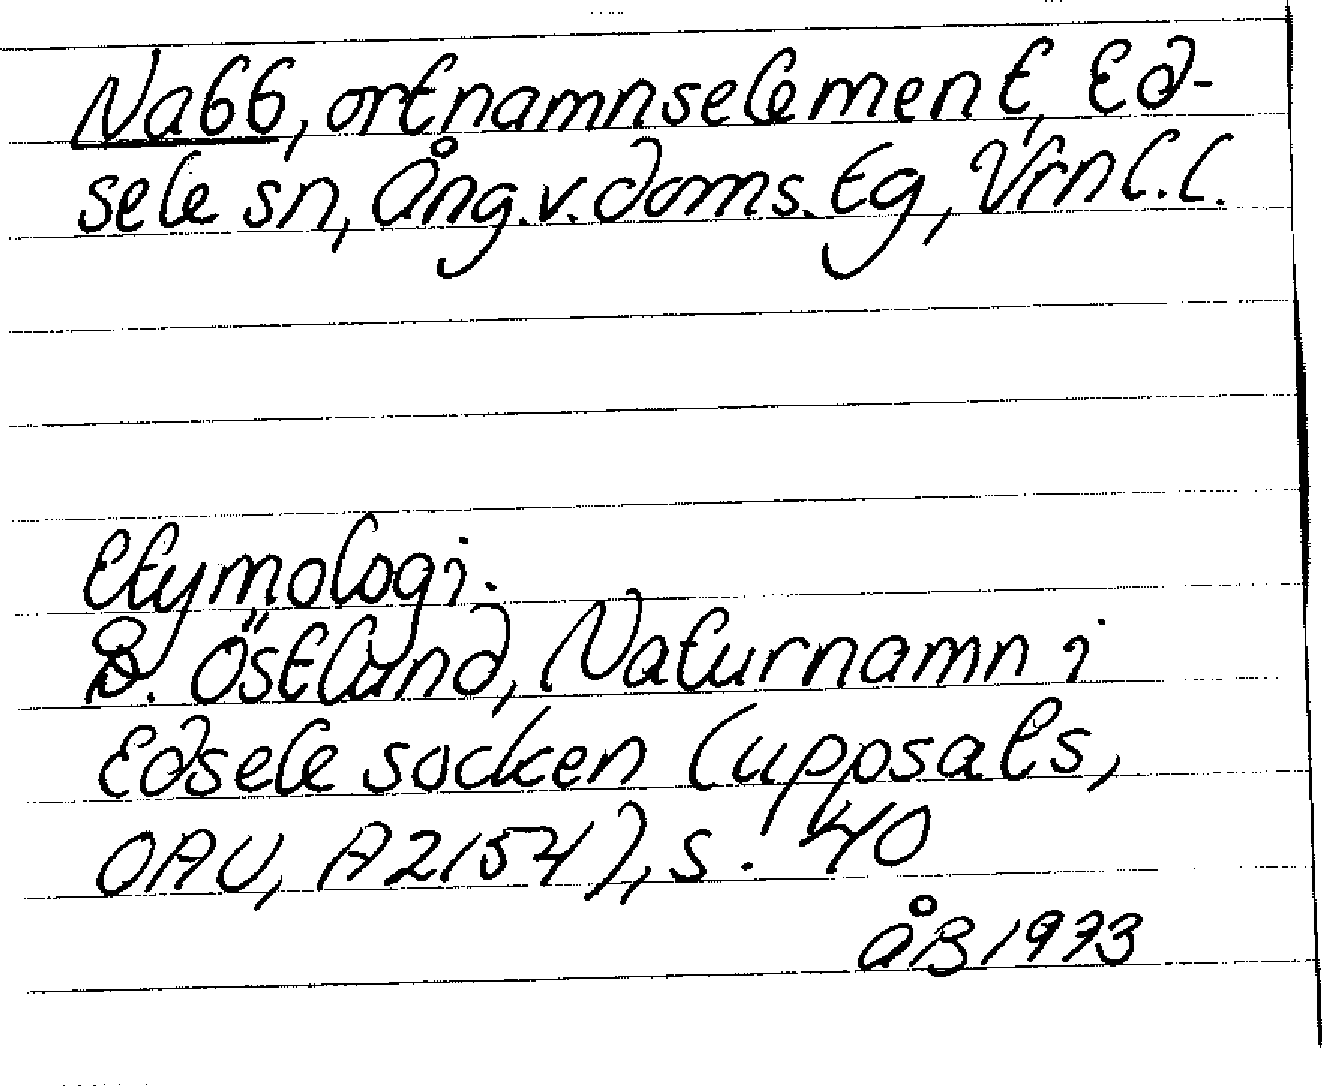 Nabb, ortnamnselement, Ed-
sele sn, Ång.v.doms. tg, Vrnl.l.
Etymologi.
B. Östlund, Naturnamn i
Edsele socken (uppsats,
OAU, A2154), s. 40
åB 1973